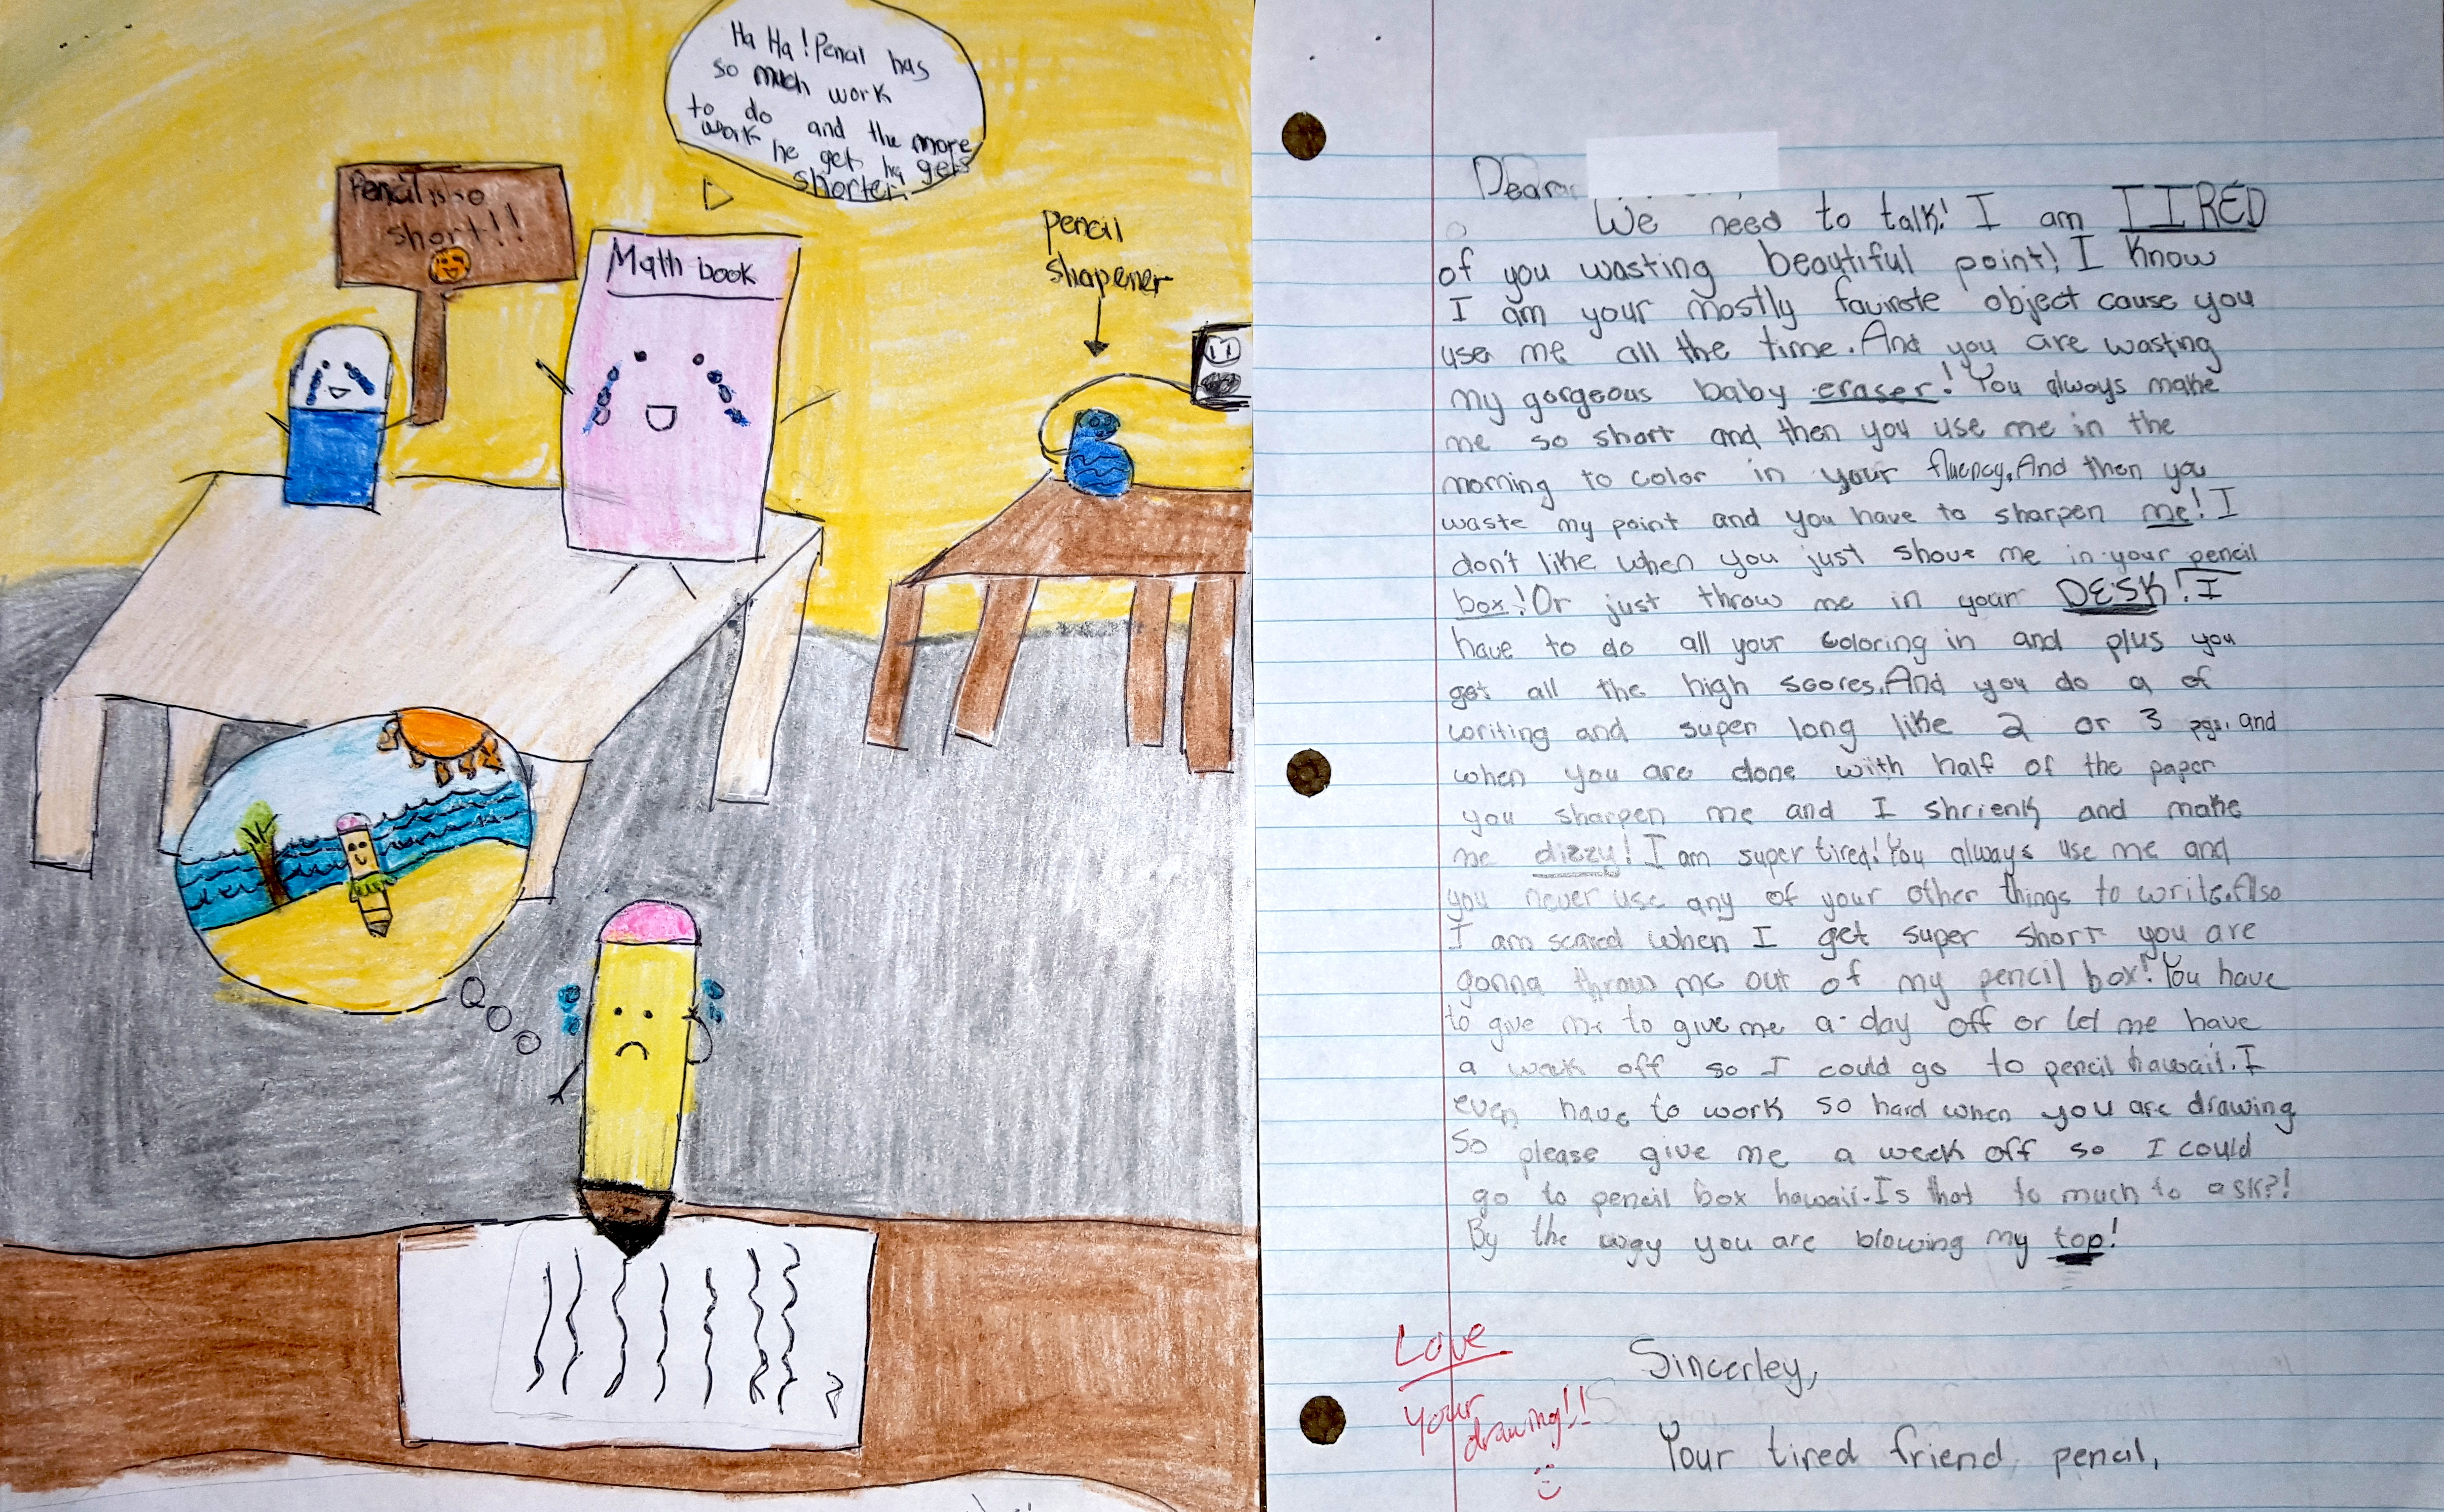 Ha Ha! Pencil has
so much work
to do and the more
work he get he gets
shorter.
Pencil is so
short!!
Math book
pencil
shapener
Dear
We need to talk! I am TIRED
of you wasting beautiful point! I know
I am your mostly favirote object cause you
use me all the time. And you are wasting
my gorgeous baby eraser! You always make
me so short and then you use me in the
morning to color in your fluency. And then you
waste my point and you have to sharpen me! I
don't like when you just shove me in your pencil
box! Or just throw me in your DESK! I
have to do all your coloring in and plus you
get all the high scores. And you do a of
writing and super long like 2 or 3 pgs. and
when you are done with half of the paper
you sharpen me and I shrienk and make
me dizzy! I am super tired! You always use me and
you never use any of your other things to write. Also
I am scared when I get super short you are
gonna throw me out of my pencil box! You have
to give me to give me a day off or let me have
a week off so I could go to pencil hawaii. I
even have to work so hard when you are drawing
So please give me a week off so I could
go to pencil box hawaii. Is that to much to ask?!
By the way you are blowing my top!
Love
Your
drawing!!
Sincerley,
Your tired friend, pencil,